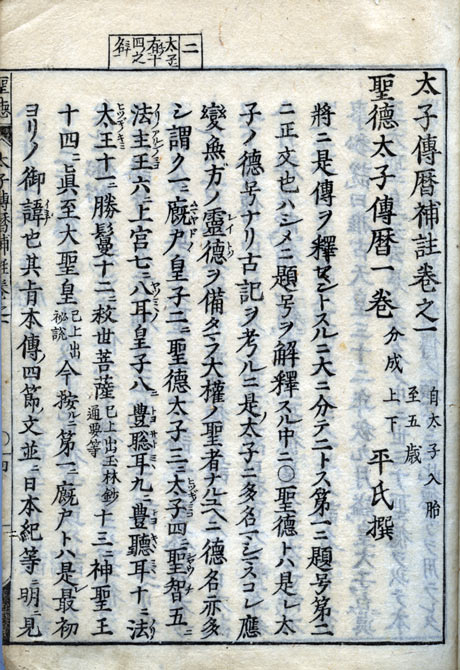 二
太子
有十
四之
名
太子傳暦補註卷之一 自太子入胎 至五歳
聖德太子傳暦一卷 分成 上下 平氏撰
將ニ是傳ヲ釋セントスルニ大ニ分テ二トス第一ニ題号第二
ニ正文也ハシメニ題号ヲ解釋スル中ニ〇聖德トハ是レ太
子ノ德号ナリ古記ヲ考ルニ是太子ニ多名マシマスコレ應
變無方ノ靈德ヲ備タマフ大權ノ聖者ナルユヘニ德名亦多
シ謂ク一ニ廐戸皇子二ニ聖德太子三ニ太子四ニ聖智五ニ
法主王六ニ上宮七ニ八耳皇子八ニ豊聡耳九ニ豊聽耳十ニ法
太王十一ニ勝鬘十二ニ救世菩薩 已上出玉林鈔 通要等 十三ニ神聖王
十四ニ眞至大聖皇 已上出 秘説 今按ルニ第一ニ廐戸トハ是レ最初
ヨリノ御諱也其肯本傳ノ四節ノ文並ニ日本紀等ニ明ニ見
太子傳暦補註卷之一